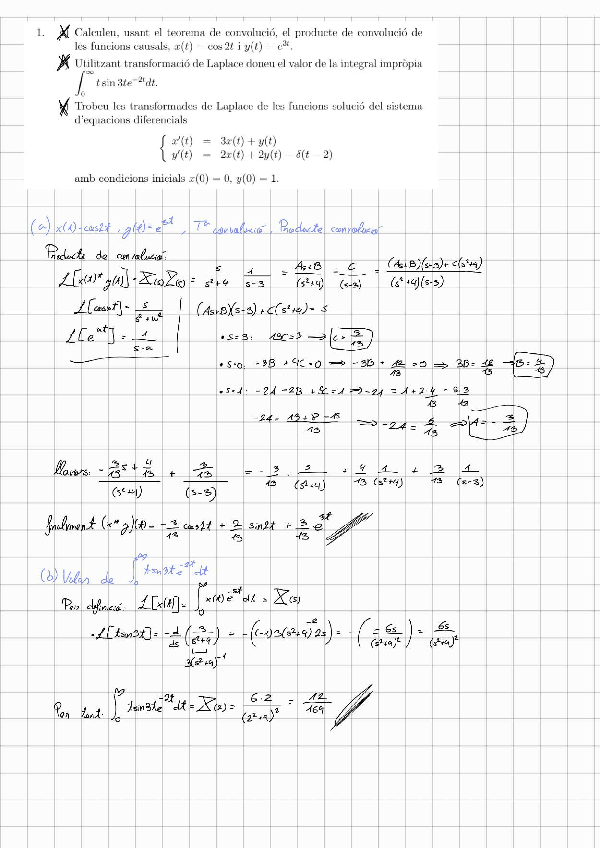 1. a) Calculeu, usant el teorema de convolució, el producte de convolució de
les funcions causals, x(t) = cos 2t i y(t) = e^{3t}.
Utilitzant transformació de Laplace doneu el valor de la integral impròpia
∫_0^∞ t sin 3t e^{-2t} dt.
Trobeu les transformades de Laplace de les funcions solució del sistema
d'equacions diferencials
{ x'(t) = 3x(t) + y(t)
y'(t) = 2x(t) + 2y(t) − δ(t − 2)
amb condicions inicials x(0) = 0, y(0) = 1.
(a) x(t)=cos2t, y(t)=e^{3t}, Tª convolució, Producte convolució
Producte de convolució:
L[x(t)*y(t)] = X(s)Y(s) = s/(s²+4) · 1/(s-3) = (As+B)/(s²+4) + C/(s-3) = ((As+B)(s-3)+C(s²+4))/((s²+4)(s-3))
L[coswt] = s/(s²+w²) (As+B)(s-3) + C(s²+4) = s
L[e^{at}] = 1/(s-a) • s=3: 13C=3 → C=3/13
• s=0: -3B + 4C = 0 → -3B + 12/13 = 0 → 3B = 12/13 → B = 4/13
• s=1: -2A -2B + 5C = 1 → -2A = 1 + 2 4/13 - 5 3/13
-2A = (13+8-15)/13 → -2A = 6/13 → A = -3/13
Llavors: (-3/13 s + 4/13)/(s²+4) + (3/13)/(s-3) = -3/13 · s/(s²+4) + 4/13 1/(s²+4) + 3/13 1/(s-3)
finalment (x*y)(t) = -3/13 cos2t + 2/13 sin2t + 3/13 e^{3t}
(b) Valor de ∫_0^∞ t sin3t e^{-2t} dt
Per definició: L[x(t)] = ∫_0^∞ x(t) e^{-st} dt = X(s)
• L[t sin3t] = -d/ds (3/(s²+9)) = -((-1)3(s²+9)^{-2} 2s) = -(-6s/(s²+9)²) = 6s/(s²+9)²
3(s²+9)^{-1}
Per tant: ∫_0^∞ t sin3t e^{-2t} dt = X(2) = 6·2/(2²+9)² = 12/169